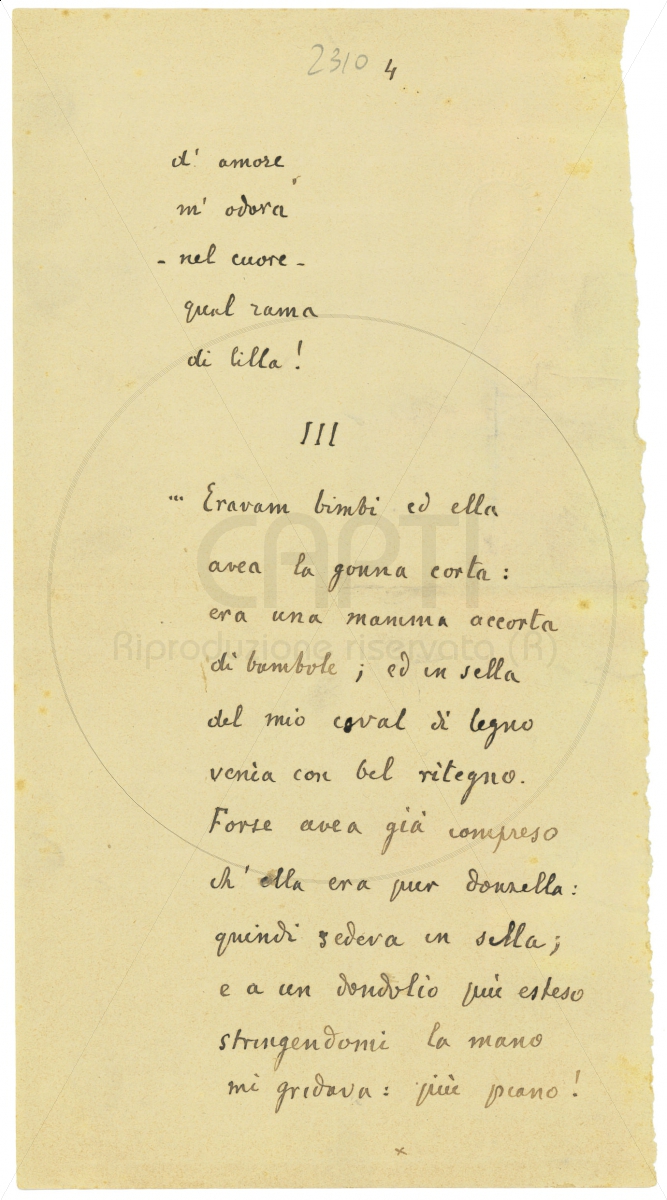 2310 4
d' amore
m' odora
- nel cuore -
qual rama
di lilla!
III
... Eravam bimbi ed ella
avea la gonna corta:
era una mamma accorta
di bambole; ed in sella
del mio caval di legno
venìa con bel ritegno.
Forse avea già compreso
ch' ella era pur donzella:
quindi sedeva in sella;
e a un dondolìo più esteso
stringendomi la mano
mi gridava: più piano!
x
CAPTI
Riproduzione riservata (R)